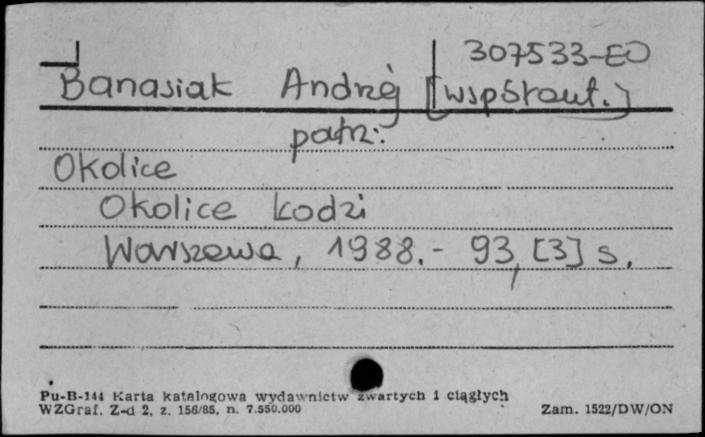 307533-EO
Banasiak Andrzej [współaut.]
patrz:
Okolice
Okolice Łodzi
Warszawa, 1988.- 93, [3] s.
Pu-B-144 Karta katalogowa wydawnictw zwartych i ciągłych
WZGraf. Z-d 2, z. 156/85, n. 7.550.000 Zam. 1522/DW/ON